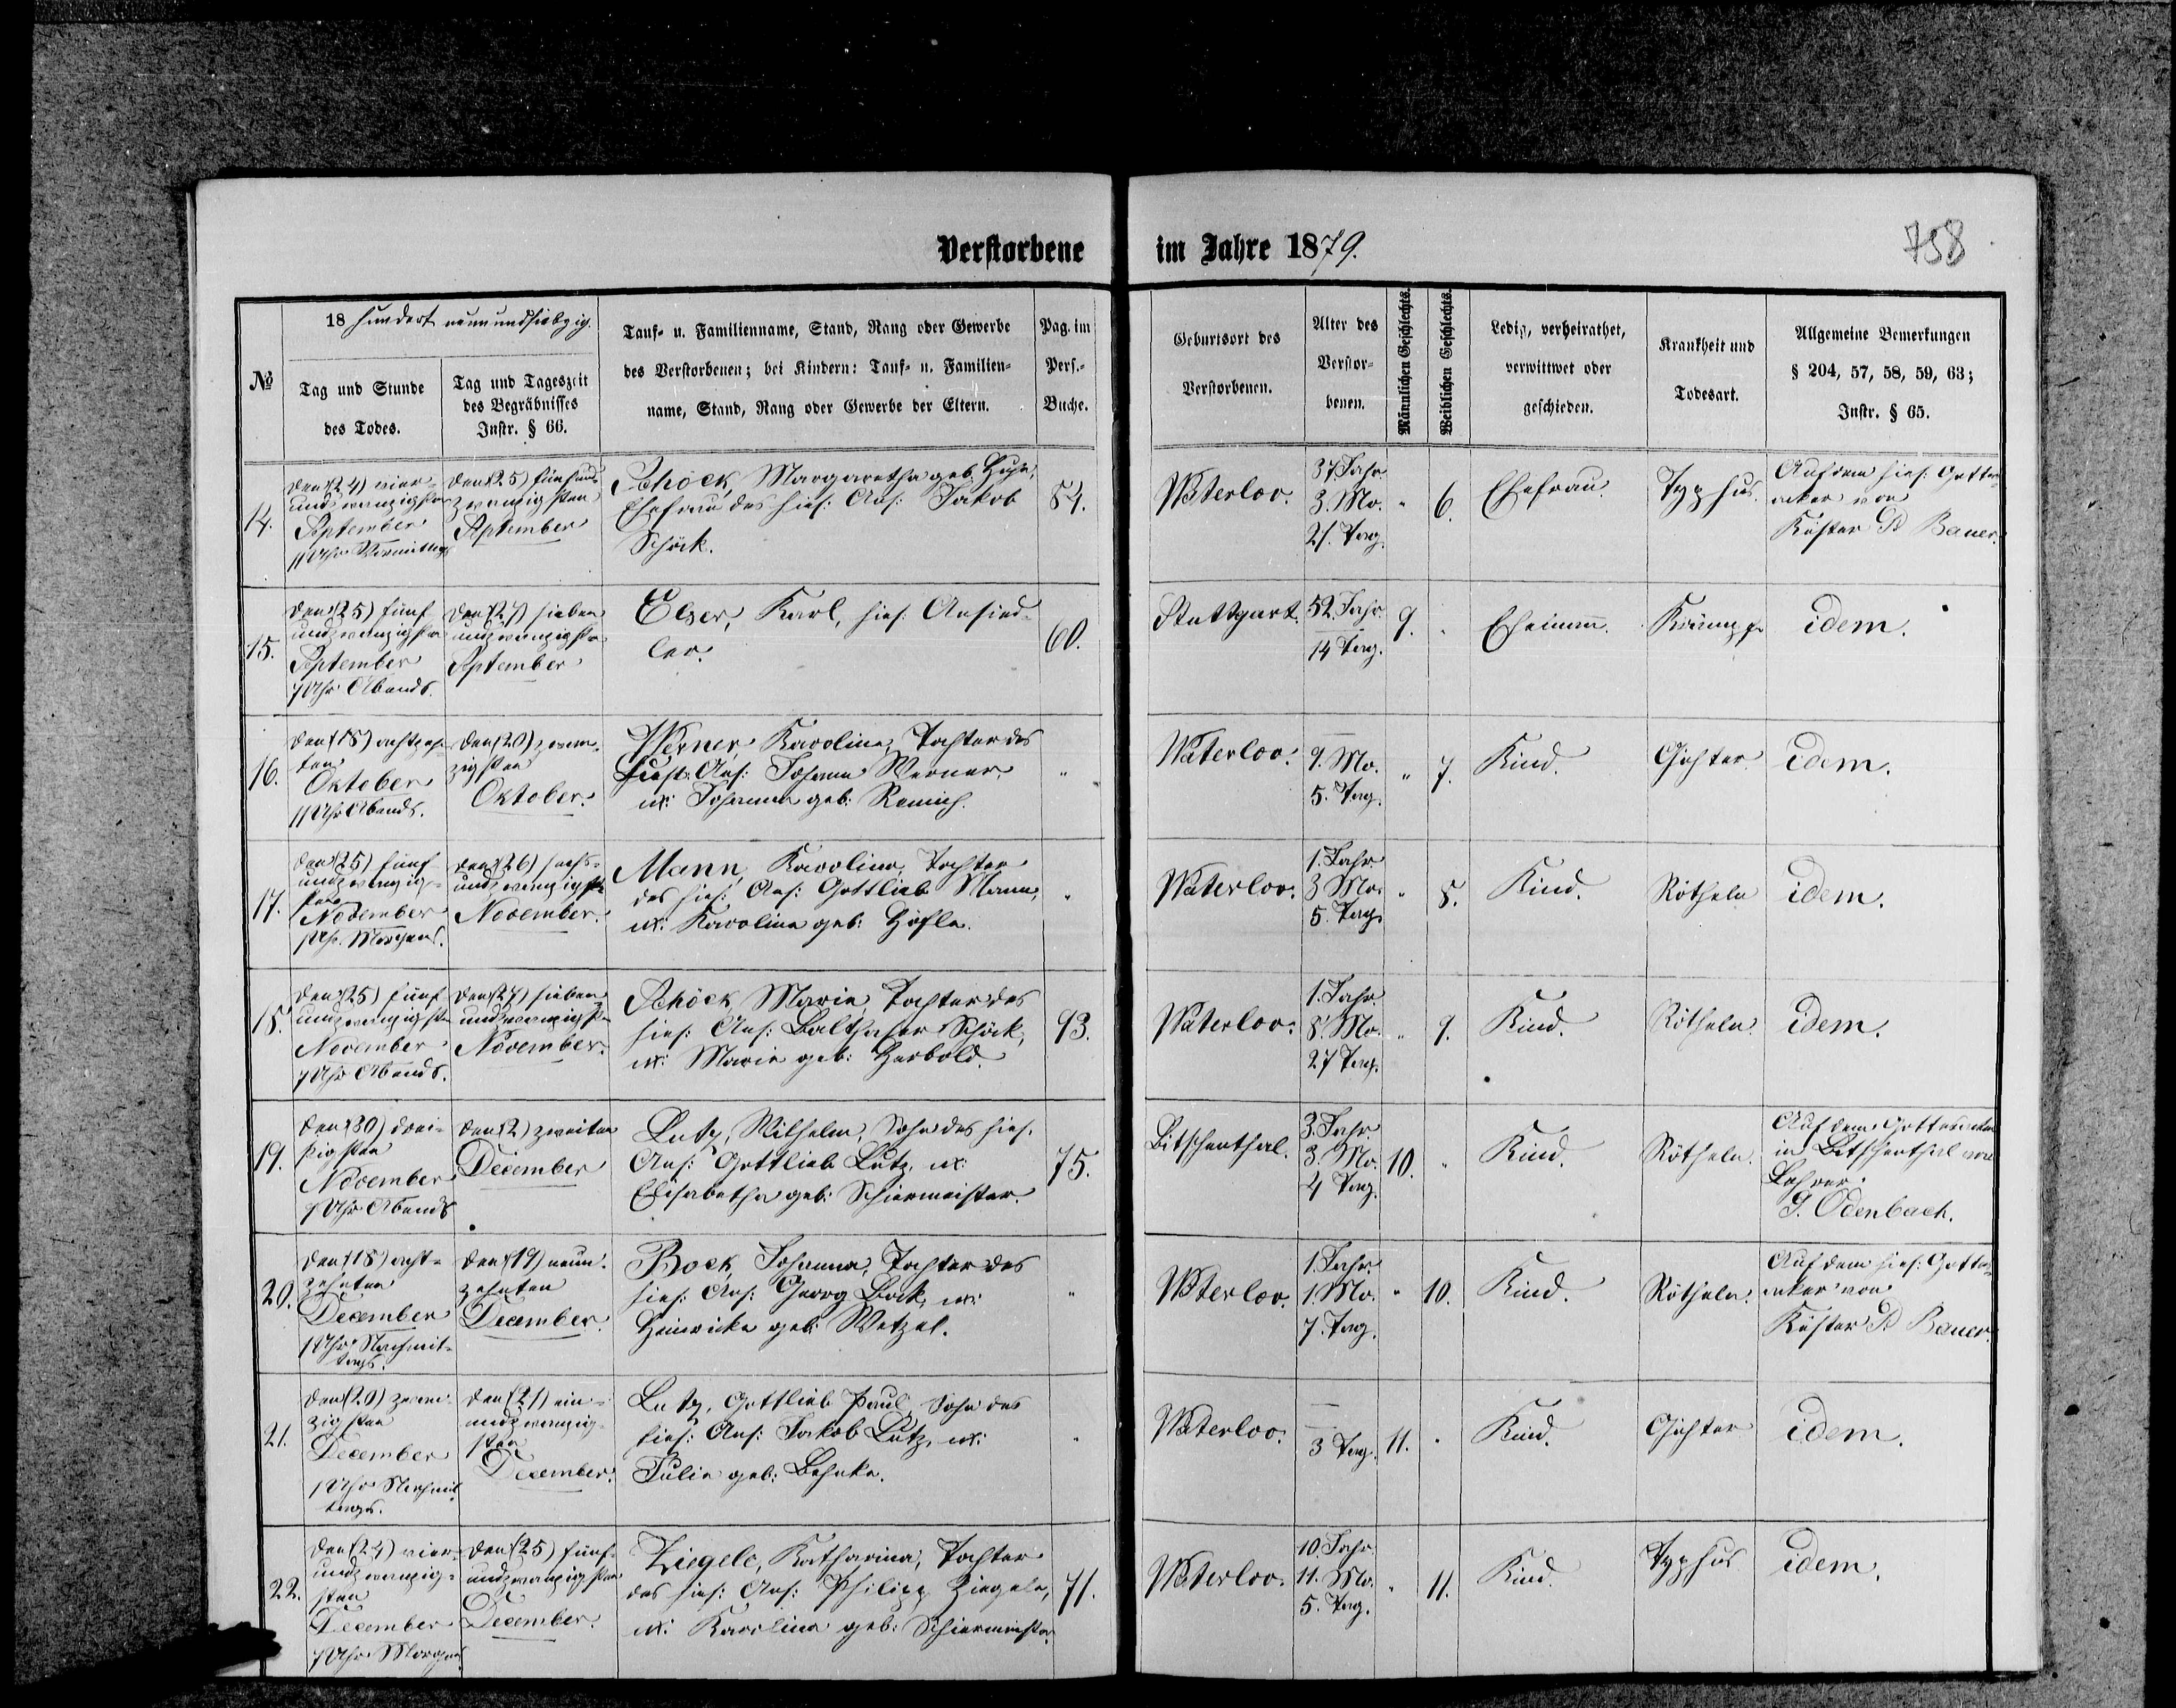 Verstorbene im Jahre 1879.
758
№
18 hundert neunundsiebzig.
Tag und Stunde
des Todes.
Tag und Tageszeit
des Begräbnisses
Instr. § 66.
Tauf- u. Familienname, Stand, Rang oder Gewerbe
des Verstorbenen; bei Kindern: Tauf- u. Familien-
name, Stand, Rang oder Gewerbe der Eltern.
Pag. im
Pers.-
Buche.
Geburtsort des
Verstorbenen.
Alter des
Verstor-
benen.
Männlichen Geschlechts.
Weiblichen Geschlechts.
Ledig, verheirathet,
verwittwet oder
geschieden.
Krankheit und
Todesart.
Allgemeine Bemerkungen
§ 204, 57, 58, 59, 63;
Instr. § 65.
14.
den (24) vier-
undzwanzigsten
September
11 Uhr Vormittags
den (25) fünfund
zwanzigsten
September
Schöck, Margaretha geb.
Ehefrau des hies: Ans: Jakob
Schöck.
84.
Waterloo.
37 Jahr.
3. Mo.
21. Tag.
"
6.
Ehefrau.
Typhus.
Auf dem hies: Gottes-
acker von
Küster D Bauer.
15.
den (25) fünf
undzwanzigsten
September
7 Uhr Abends.
den (27) sieben
undzwanzigsten
September
Elser, Karl, hies: Ansied-
ler.
60.
Stuttgart.
52. Jahr
14 Tag.
9.
"
Ehemann.
Krämpfe
idem.
16.
den (18) achtzehn-
ten
Oktober
11 Uhr Abends.
den (20) zwan-
zigsten
Oktober.
Werner Karolina, Tochter des
hies: Ans: Johann Werner,
u: Johanna geb: Remich.
"
Waterloo.
9. Mo.
5. Tag.
"
7.
Kind.
Gichter
idem.
17.
den (25) fünf
undzwanzig-
sten
November
1 Uhr. Morgens.
den (26) sechs-
undzwanzigsten
November.
Mann, Karolina, Tochter
des hies: Ans: Gottlieb Mann,
u: Karolina geb: Höfle.
"
Waterloo.
1. Jahr.
3 Mo.
5. Tag.
"
8.
Kind.
Rötheln
idem.
18.
den (25) fünf
undzwanzigsten
November
7 Uhr Abends.
den (27) sieben
undzwanzigsten
November.
Schöck Maria, Tochter des
hies: Ans: Balthaser Schöck,
u: Maria geb: Herbold.
93.
Waterloo.
1. Jahr.
8. Mo.
27 Tag.
"
9.
Kind.
Rötheln
idem.
19.
den (30) drei-
sigsten
November
1 Uhr Abends
den (2) zweiten
December
Lutz, Wilhelm, Sohn des hies.
Ans: Gottlieb Lutz, u:
Elisabetha geb: Schiermeister.
75.
Bitschenthal.
3. Jahr.
3. Mo.
4 Tag.
10.
"
Kind.
Rötheln.
Auf dem Gottesacker
in Bitschenthal von
Lehrer
G. Odenbach.
20.
den (18) acht-
zehnten
December
1 Uhr Nachmit-
tags.
den (19) neun-
zehnten
December.
Bock, Johanna, Tochter des
hies: Ans: Georg Bock, u:
Heinricke geb: Wetzel.
"
Waterloo.
1. Jahr.
1. Mo.
7. Tag.
"
10.
Kind.
Rötheln.
Auf dem hies: Gottes-
acker von
Küster D Bauer.
21.
den (20) zwan-
zigsten
December
1 Uhr Nachmit-
tags.
den (21) ein-
undzwanzig-
sten
December.
Lutz, Gottlieb Paul, Sohn des
hies: Ans: Jakob Lutz, u:
Julia geb: Behnke.
"
Waterloo.
3 Tag.
11.
"
Kind.
Gichter
idem.
22.
den (24) vier-
undzwanzig-
sten
December
7 Uhr Morgens
den (25) fünf-
undzwanzigsten
December.
Ziegele, Katharina, Tochter
des hies: Ans: Philipp Ziegele,
u: Karolina geb: Schiermeister
71.
Waterloo.
10. Jahr
11. Mo.
5. Tag.
"
11.
Kind.
Typhus
idem.